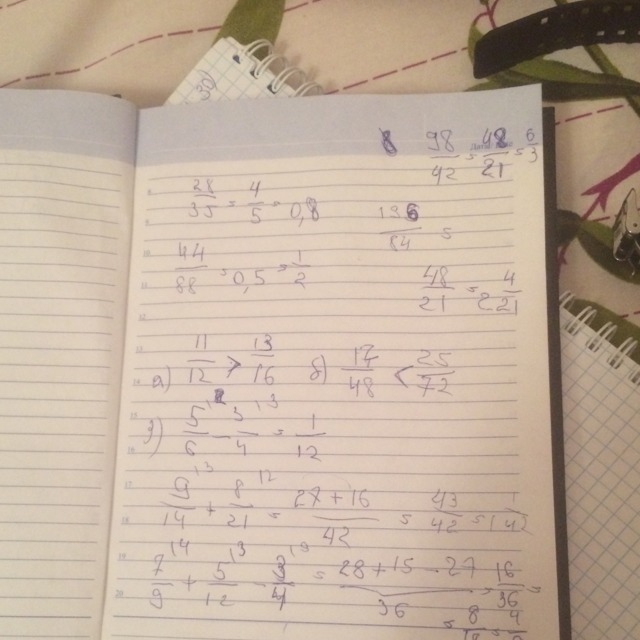 98/42 = 48/21 = 6/3
28/35 = 4/5 = 0,8
196/84 =
44/88 = 0,5 = 1/2
48/21 = 2 4/21
а) 11/12 > 13/16 б) 17/48 < 25/72
5/6 - 3/4 = 1/12
9/14 + 8/21 = 27+16/42 = 43/42 = 1 1/42
7/9 + 5/12 - 3/4 = 28+15-27/36 = 16/36 =
= 8 4